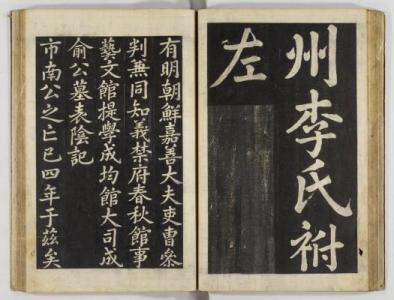 州李氏祔
左
有明朝鮮嘉善大夫吏曹叅
判兼同知義禁府春秋館事
藝文館提學成均館大司成
俞公墓表陰記
市南公之亡已四年于茲矣